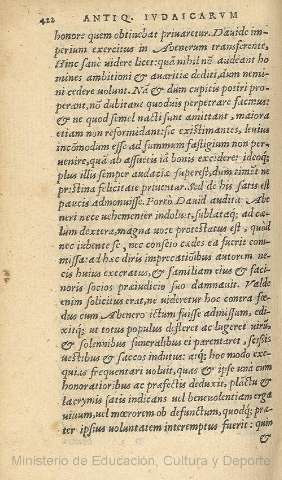 422 ANTIQ. IVDAICARVM
honore quem obtinebat priuaretur. Dauide im-
perium exercitus in Abenerum transferente.
Hinc sanè videre licet: quã nihil nõ audeant ho
mines ambitioni & auaritiæ dediti, dum nemi-
ni cedere volunt. Nã & dum cupitis potiri pro-
perant, nõ dubitant quoduis perpetrare facinus:
& ne quod semel nacti sunt amittant, maiora
etiam non reformidant: sic existimantes, leuius
incõmodum esse ad summum fastigium non per-
uenire, quã ab assuetis iã bonis excidere: ideoq;
plus illis semper audaciæ superest, dum timẽt ne
pristina felicitate priuentur. Sed de his satis est
paucis admonuisse. Porrò Dauid audita Abe-
neri nece vehementer indoluit, sublataq; ad cæ-
lum dextera, magna voce protestatus est, quod
nec iubente se, nec conscio cædes ea fuerit commis-
missa: ad hæc diris imprecatiõibus autorem ne-
cis huius execratus, & familiam eius & faci-
noris socios præiudicio suo damnauit. Valde
enim solicitus erat, ne videretur hoc contra fœ-
dus cum Abenero ictum fuisse admissum, ed-
ixitq; vt totus populus defleret ac lugeret virũ,
& solennibus funeralibus ei parentaret, scissis
vestibus & saccos indutus: atq; hoc modo exe-
quias frequentari voluit, quas & ipse vna cum
honoratioribus ac præfectis deduxit, plãctu &
lacrymis satis indicans vel beneuolentiam erga
viuum, vel mœrorem ob defunctum, quodq; præ-
ter ipsius voluntatem interemptus fuerit: quin
&
Ministerio de Educación, Cultura y Deporte